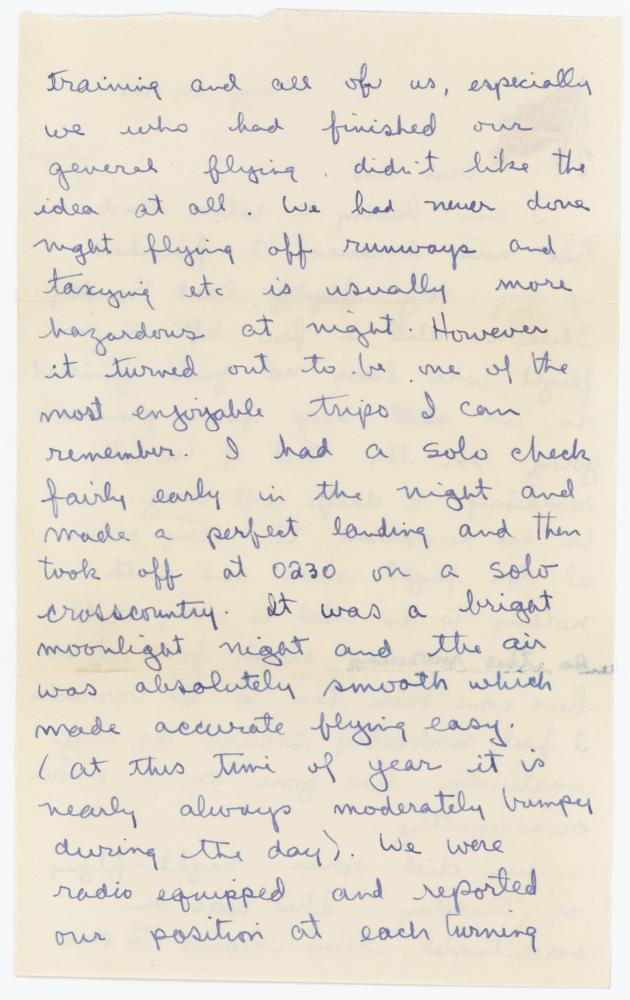 training and all of us, especially
we who had finished our
general flying. didn't like the
idea at all. We had never done
night flying off runways and
taxying etc is usually more
hazardous at night. However
it turned out to be one of the
most enjoyable trips I can
remember. I had a solo check
fairly early in the night and
made a perfect landing and then
took off at 0230 on a solo
crosscountry. It was a bright
moonlight night and the air
was absolutely smooth which
made accurate flying easy.
(at this time of year it is
nearly always moderately bumpy
during the day). We were
radio equipped and reported
our position at each turning